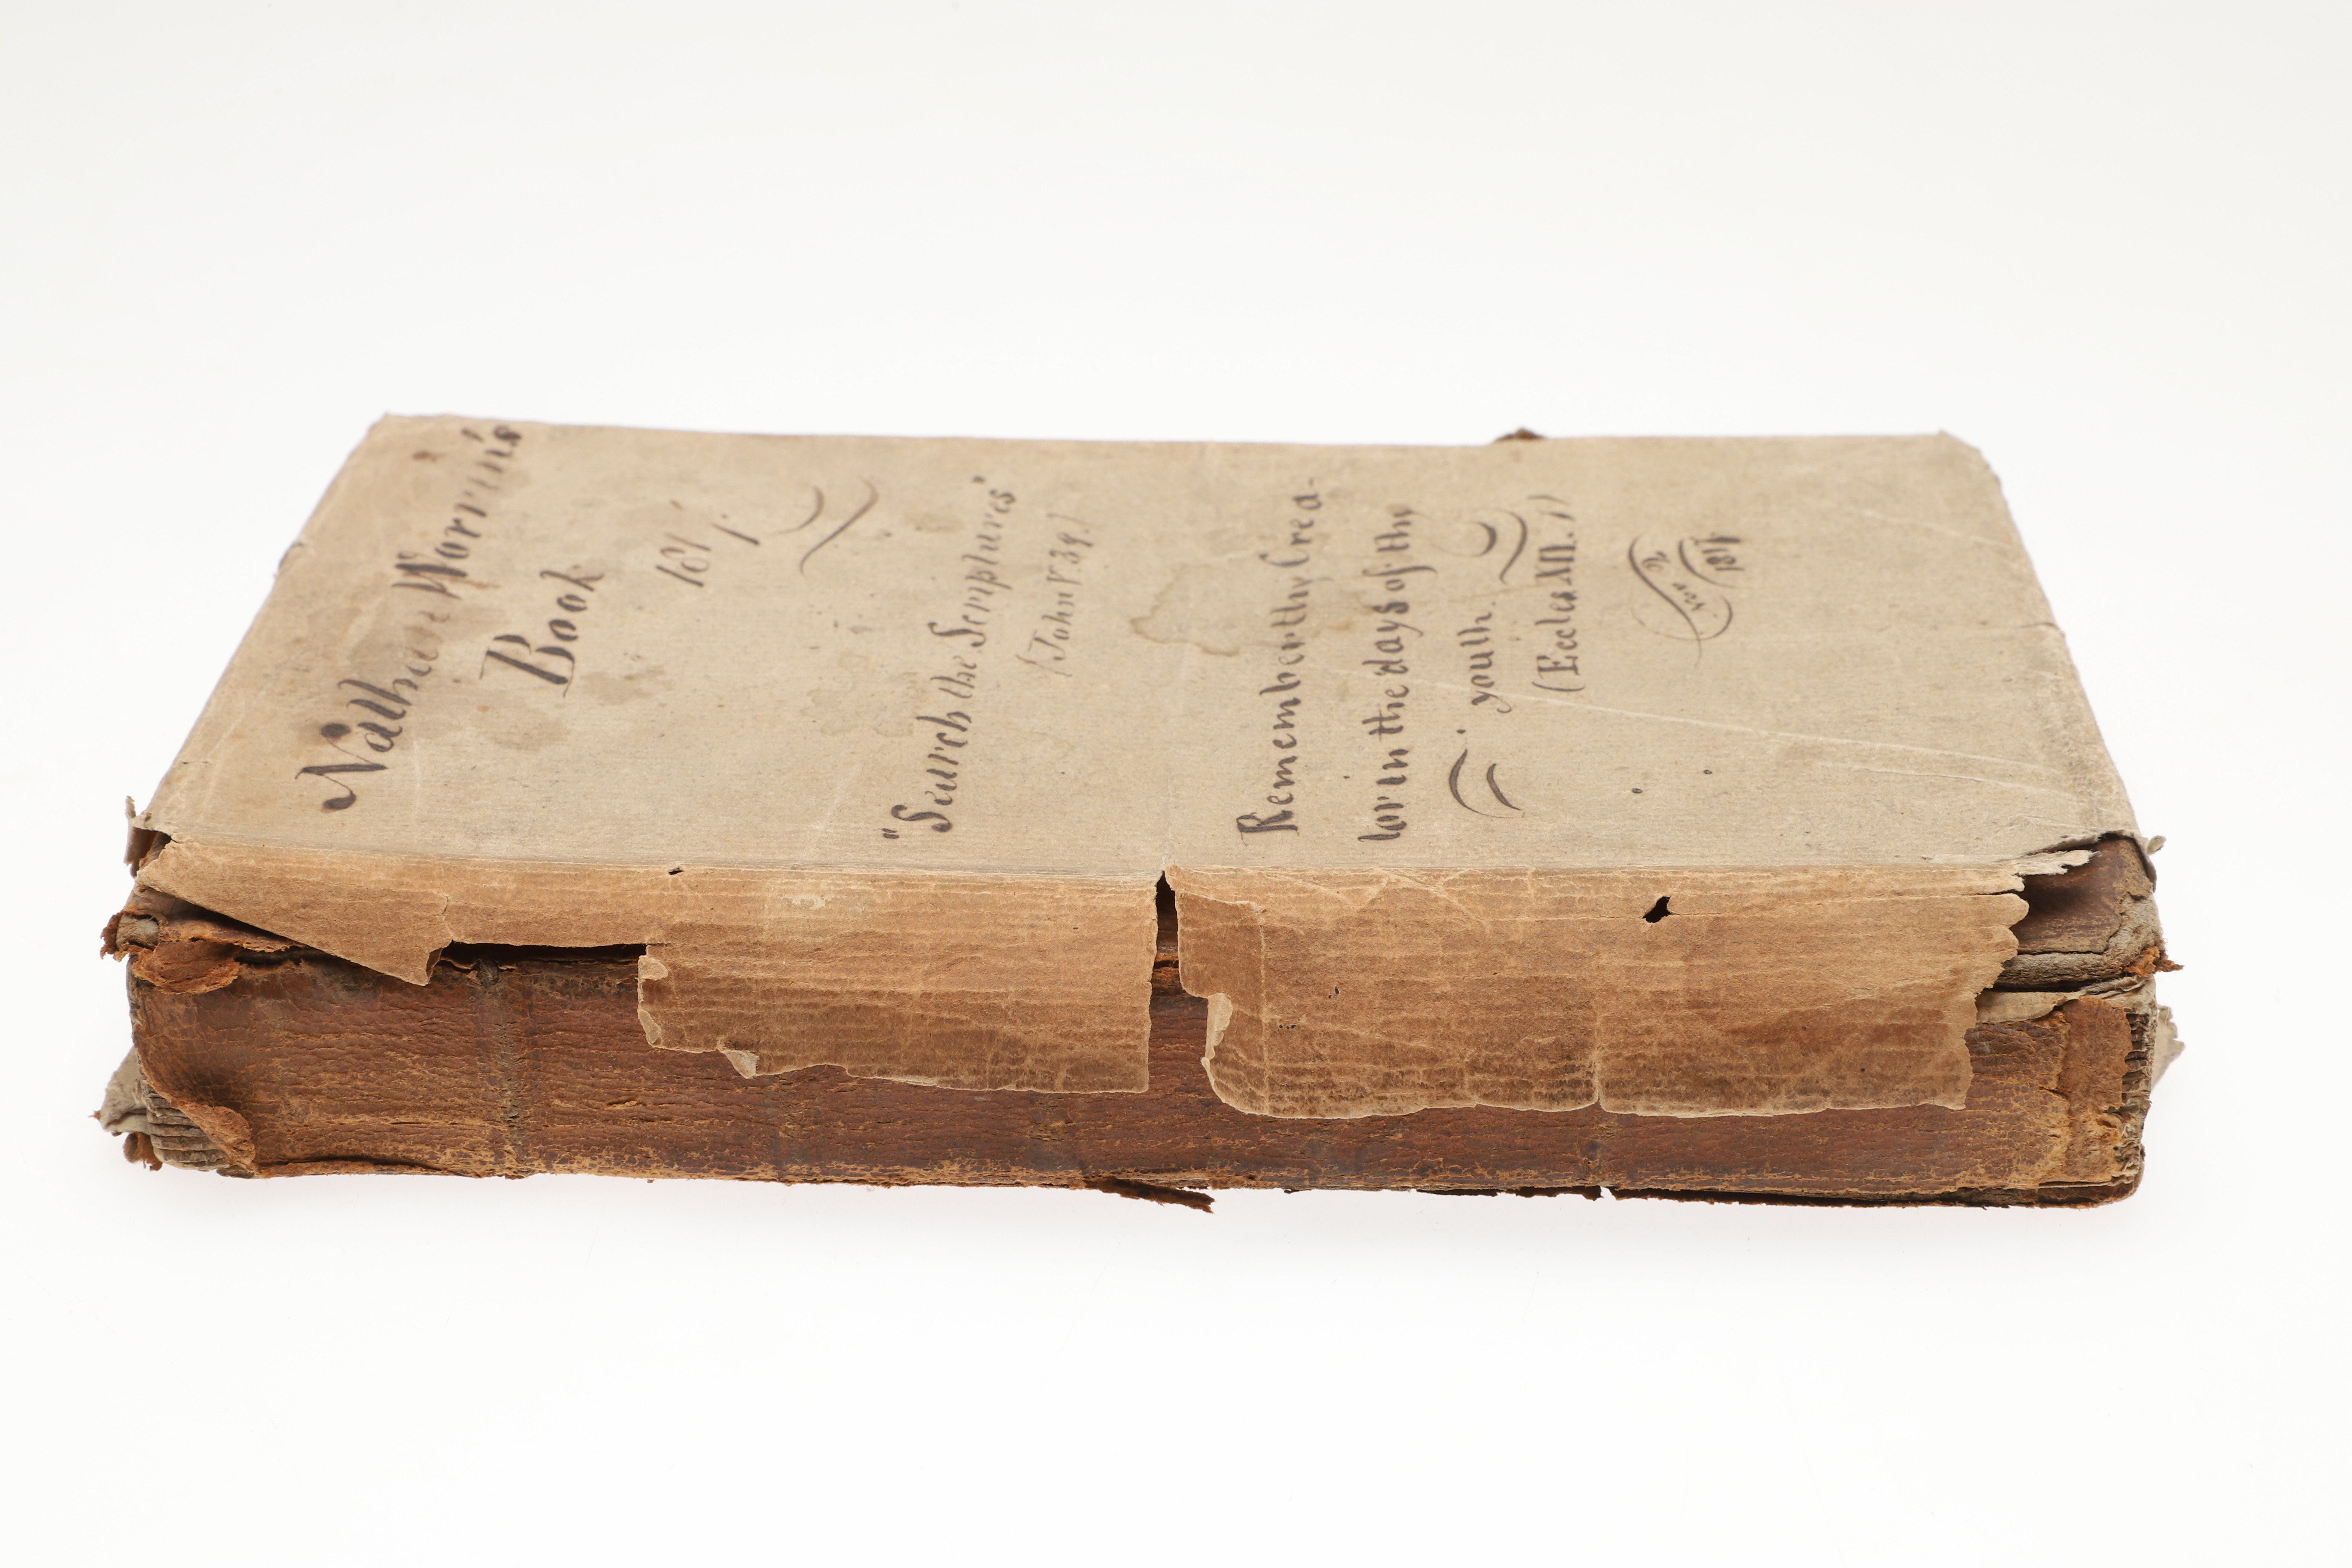 Nathan Worrin's
Book
1817.
"Search the Scriptures"
(John V. 39.)
Remember thy Crea-
tor in the days of thy
youth.
(Eccles. XII. 1)
1817